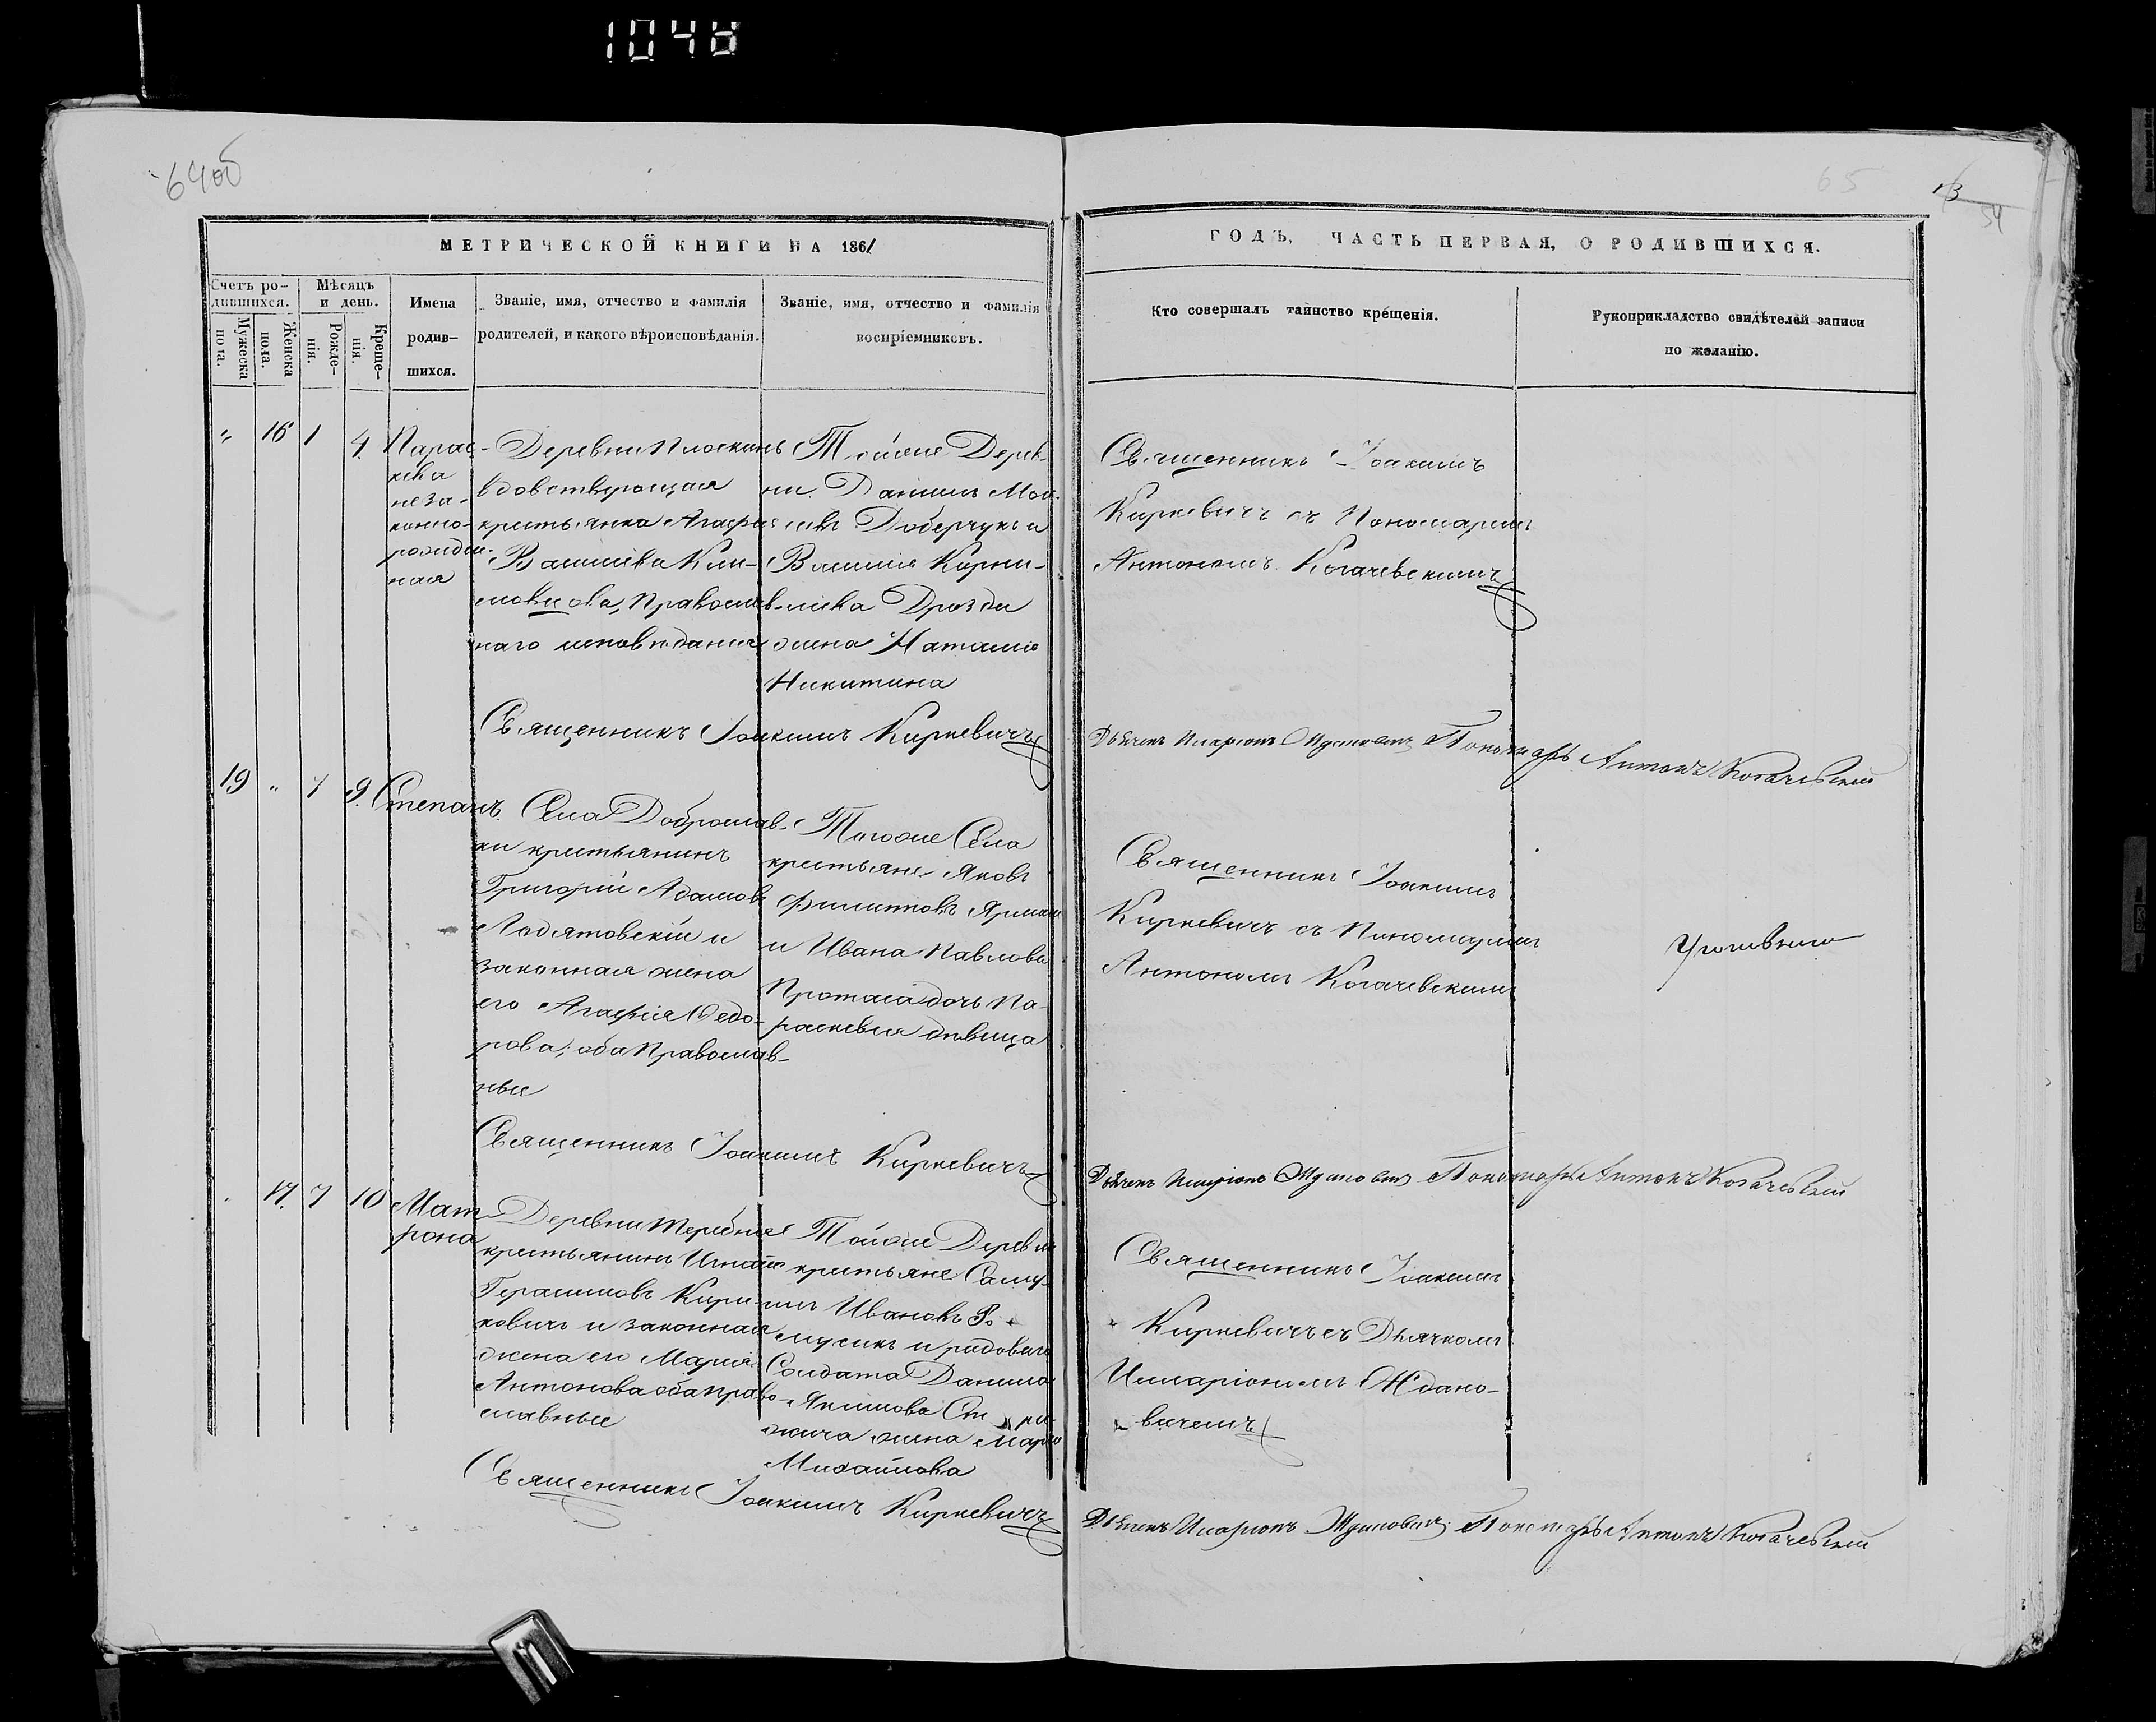 1048
64об
65
13
54
МЕТРИЧЕСКОЙ КНИГИ НА 1861
ГОДЪ, ЧАСТЬ ПЕРВАЯ, О РОДИВШИХСЯ.
Счетъ ро-
дившихся.
Мужеска
пола.
Женска
пола.
Мѣсяцъ
и день.
Рожде-
нія.
Креще-
нія.
Имена
родив-
шихся.
Званіе, имя, отчество и фамилія
родителей, и какого вѣроисповѣданія.
Званіе, имя, отчество и фамилія
воспріемниковъ.
Кто совершалъ таинство крещенія.
Рукоприкладство свидѣтелей записи
по желанію.
" 16 1 4
Парас-
кева
неза-
конно-
рожден-
ная
Деревни Плоскинь
вдовствующая
крестьянка Агафія
Васильева Кли-
мовцова, Православ-
наго исповѣданія
Тойже Дерев-
ни Даніилъ Мои-
сеевъ Доберчукъ и
Василія Корни-
лиева Дрозда
жена Наталія
Никитина
Священникъ Іоакимъ
Киркевичъ съ Пономаремъ
Антономъ Когачевскимъ
Священникъ Іоакимъ Киркевичъ
Дьячекъ Иларіонъ Ждановичъ Пономарь Антонъ Когачевскій
19 " 7 9
Степанъ
Села Доброслав-
ки крестьянинъ
Григорій Адамовъ
Лодятовскій и
законная жена
его Агафія Федо-
рова; оба Православ-
ные
Тогоже Села
крестьяне Яковъ
Филиповъ
и Ивана Павлова
Протаса дочь Па-
раскевія дѣвица
Священникъ Іоакимъ
Киркевичъ съ Пономаремъ
Антономъ Когачевскимъ
Священникъ Іоакимъ Киркевичъ
Дьячекъ Иларіонъ Ждановичъ Пономарь Антонъ Когачевскій
17 7 10
Мат-
рона
Деревни Теребное
крестьянинъ Игнатій
Герасимовъ Кири-
ковичъ и законная
жена его Марія
Антонова оба право-
славные
Тойже Деревни
крестьяне Саму-
илъ Ивановъ
и рядоваго
Солдата Данила
Якимова
жена Марія
Михайлова
Священникъ Іоакимъ
Киркевичъ съ Дьячкомъ
Илларіономъ Ждано-
вичемъ
Священникъ Іоакимъ Киркевичъ
Дьячекъ Иларіонъ Ждановичъ Пономарь Антонъ Когачевскій